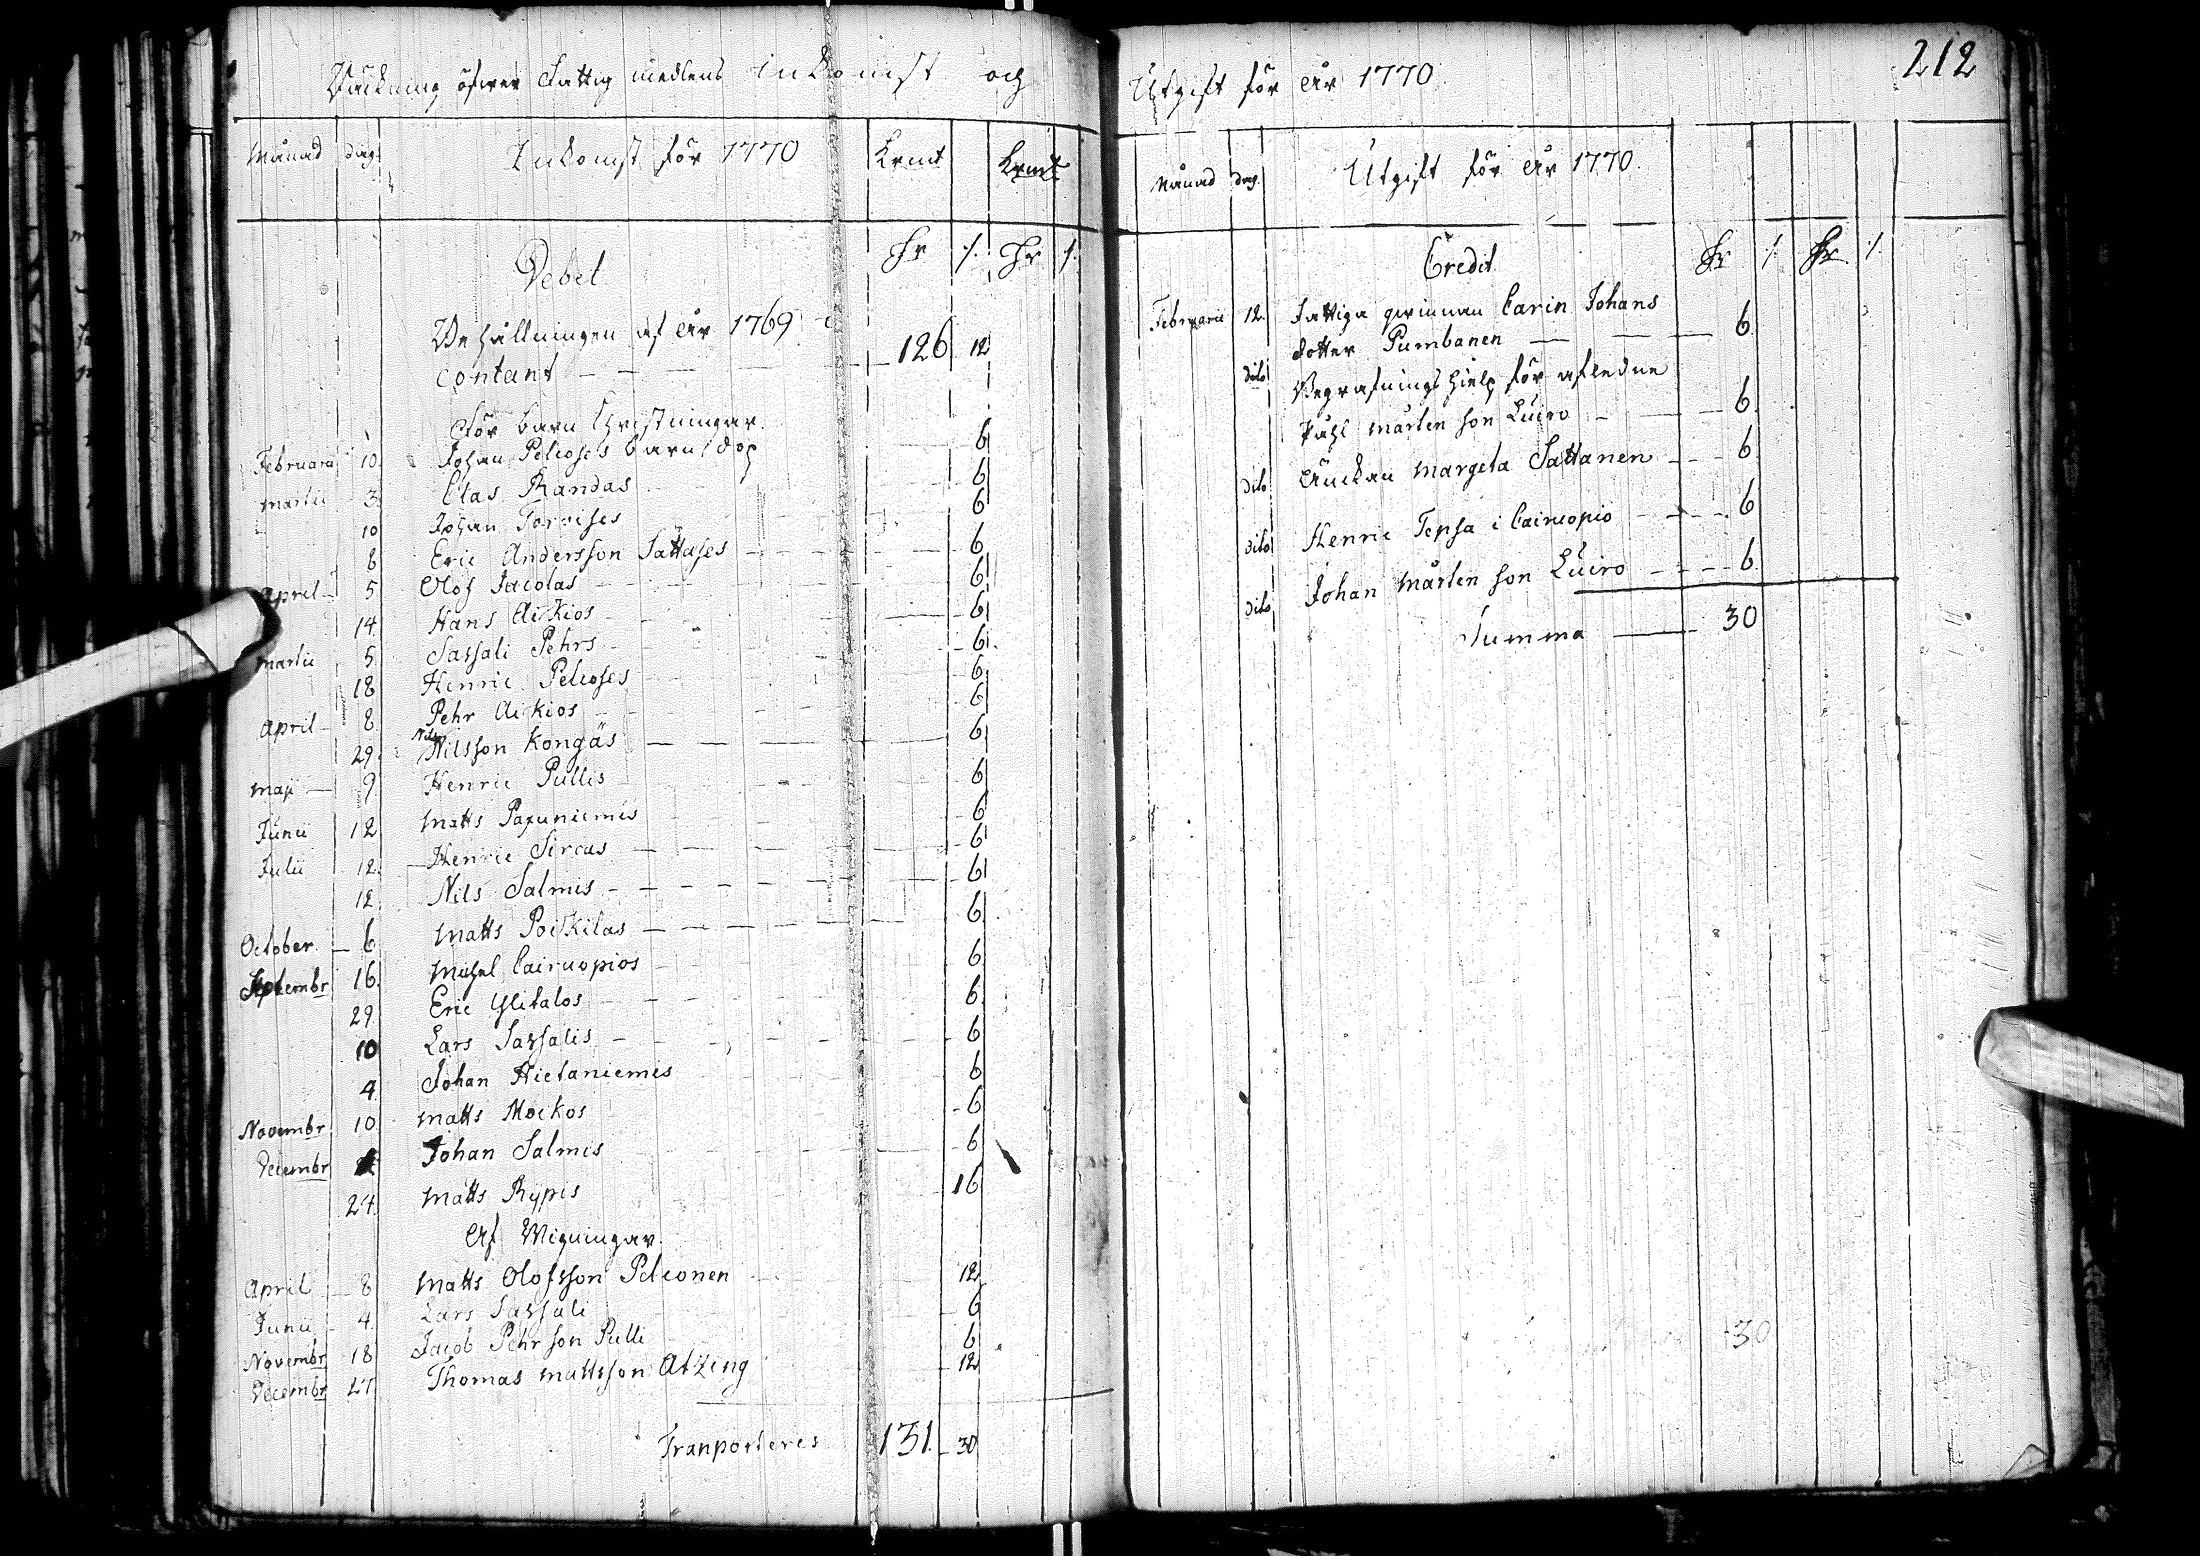 Räkning öfwer Fattig medlens Inkomst och
Månad dag. Inkomst för 1770 Krmt Krmt
Debet Dr /. Dr /.
Behållningen af år 1769
contant — — — 126 12
För barn Christningar.
Februarii 10. Johan Pelcoses barns dop 6
Martii 3. Clas Randas 6
10 Johan Torvises 6
8 Eric Andersson Sattases — — 6
April 5 Olof Jacolas — — 6
14. Hans Aikios — — 6
Martii 5 Sassali Pehrs — 6
18 Henric Pelcoses — 6
April 8 Pehr Aikios — — 6
29. Nils Nilsson Kongäs — — 6
Maji 9 Henric Pullis 6
Junii 12 Matts Papuniemis 6
Julii 12. Henric Sircas — — 6
12. Nils Salmis — — 6
October. 6 Matts Poikilas — — 6
Septembr 16. Michel Cairuopios 6
29 Eric Ylitalos — — 6
10 Lars Sassalis — — 6
4 Johan Hietaniemis 6
Novembr 10 Matts Moikos 6
Decembr Johan Salmis 6
24. Matts Rypis 16
Af Wigningar.
April 8 Matts Olofsson Pelconen 12
Junii 4. Lars Sassali 6
Novembr 18 Jacob Pehrson Pulli 6
Decembr 27 Thomas Mattsson Atzing 12
Tranporteres 131. 30
212
Utgift för år 1770.
Månad dag. Utgift för år 1770.
Credit Dr /. Dr /.
Februarii 12. Fattiga qwinnan Carin Johans
dotter Pumbanen — — 6
dito Begrafnings hielp för afledne
Påhl Mårten son Luiro — — 6
dito Änckan Margeta Sattanen — — 6
dito Henric Tepsa i Cairuopio — — 6
dito Johan Mårten son Luiro — — 6
Summa — 30
30